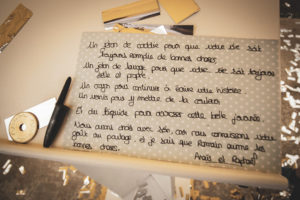 Un pion de caddie pour que votre vie soit
toujours remplie de bonnes choses.
Un jeton de lavage pour que votre vie soit toujours
belle et propre.
Un crayon pour continuer à écrire votre histoire
Un vernis pour y mettre de la couleur
Et du liquide pour arroser cette belle journée.
Nous avons choisi avec soin, car nous connaissons votre
goût du partage et je sais que Romain aime les
bonnes choses.
Anaïs et Raphaël